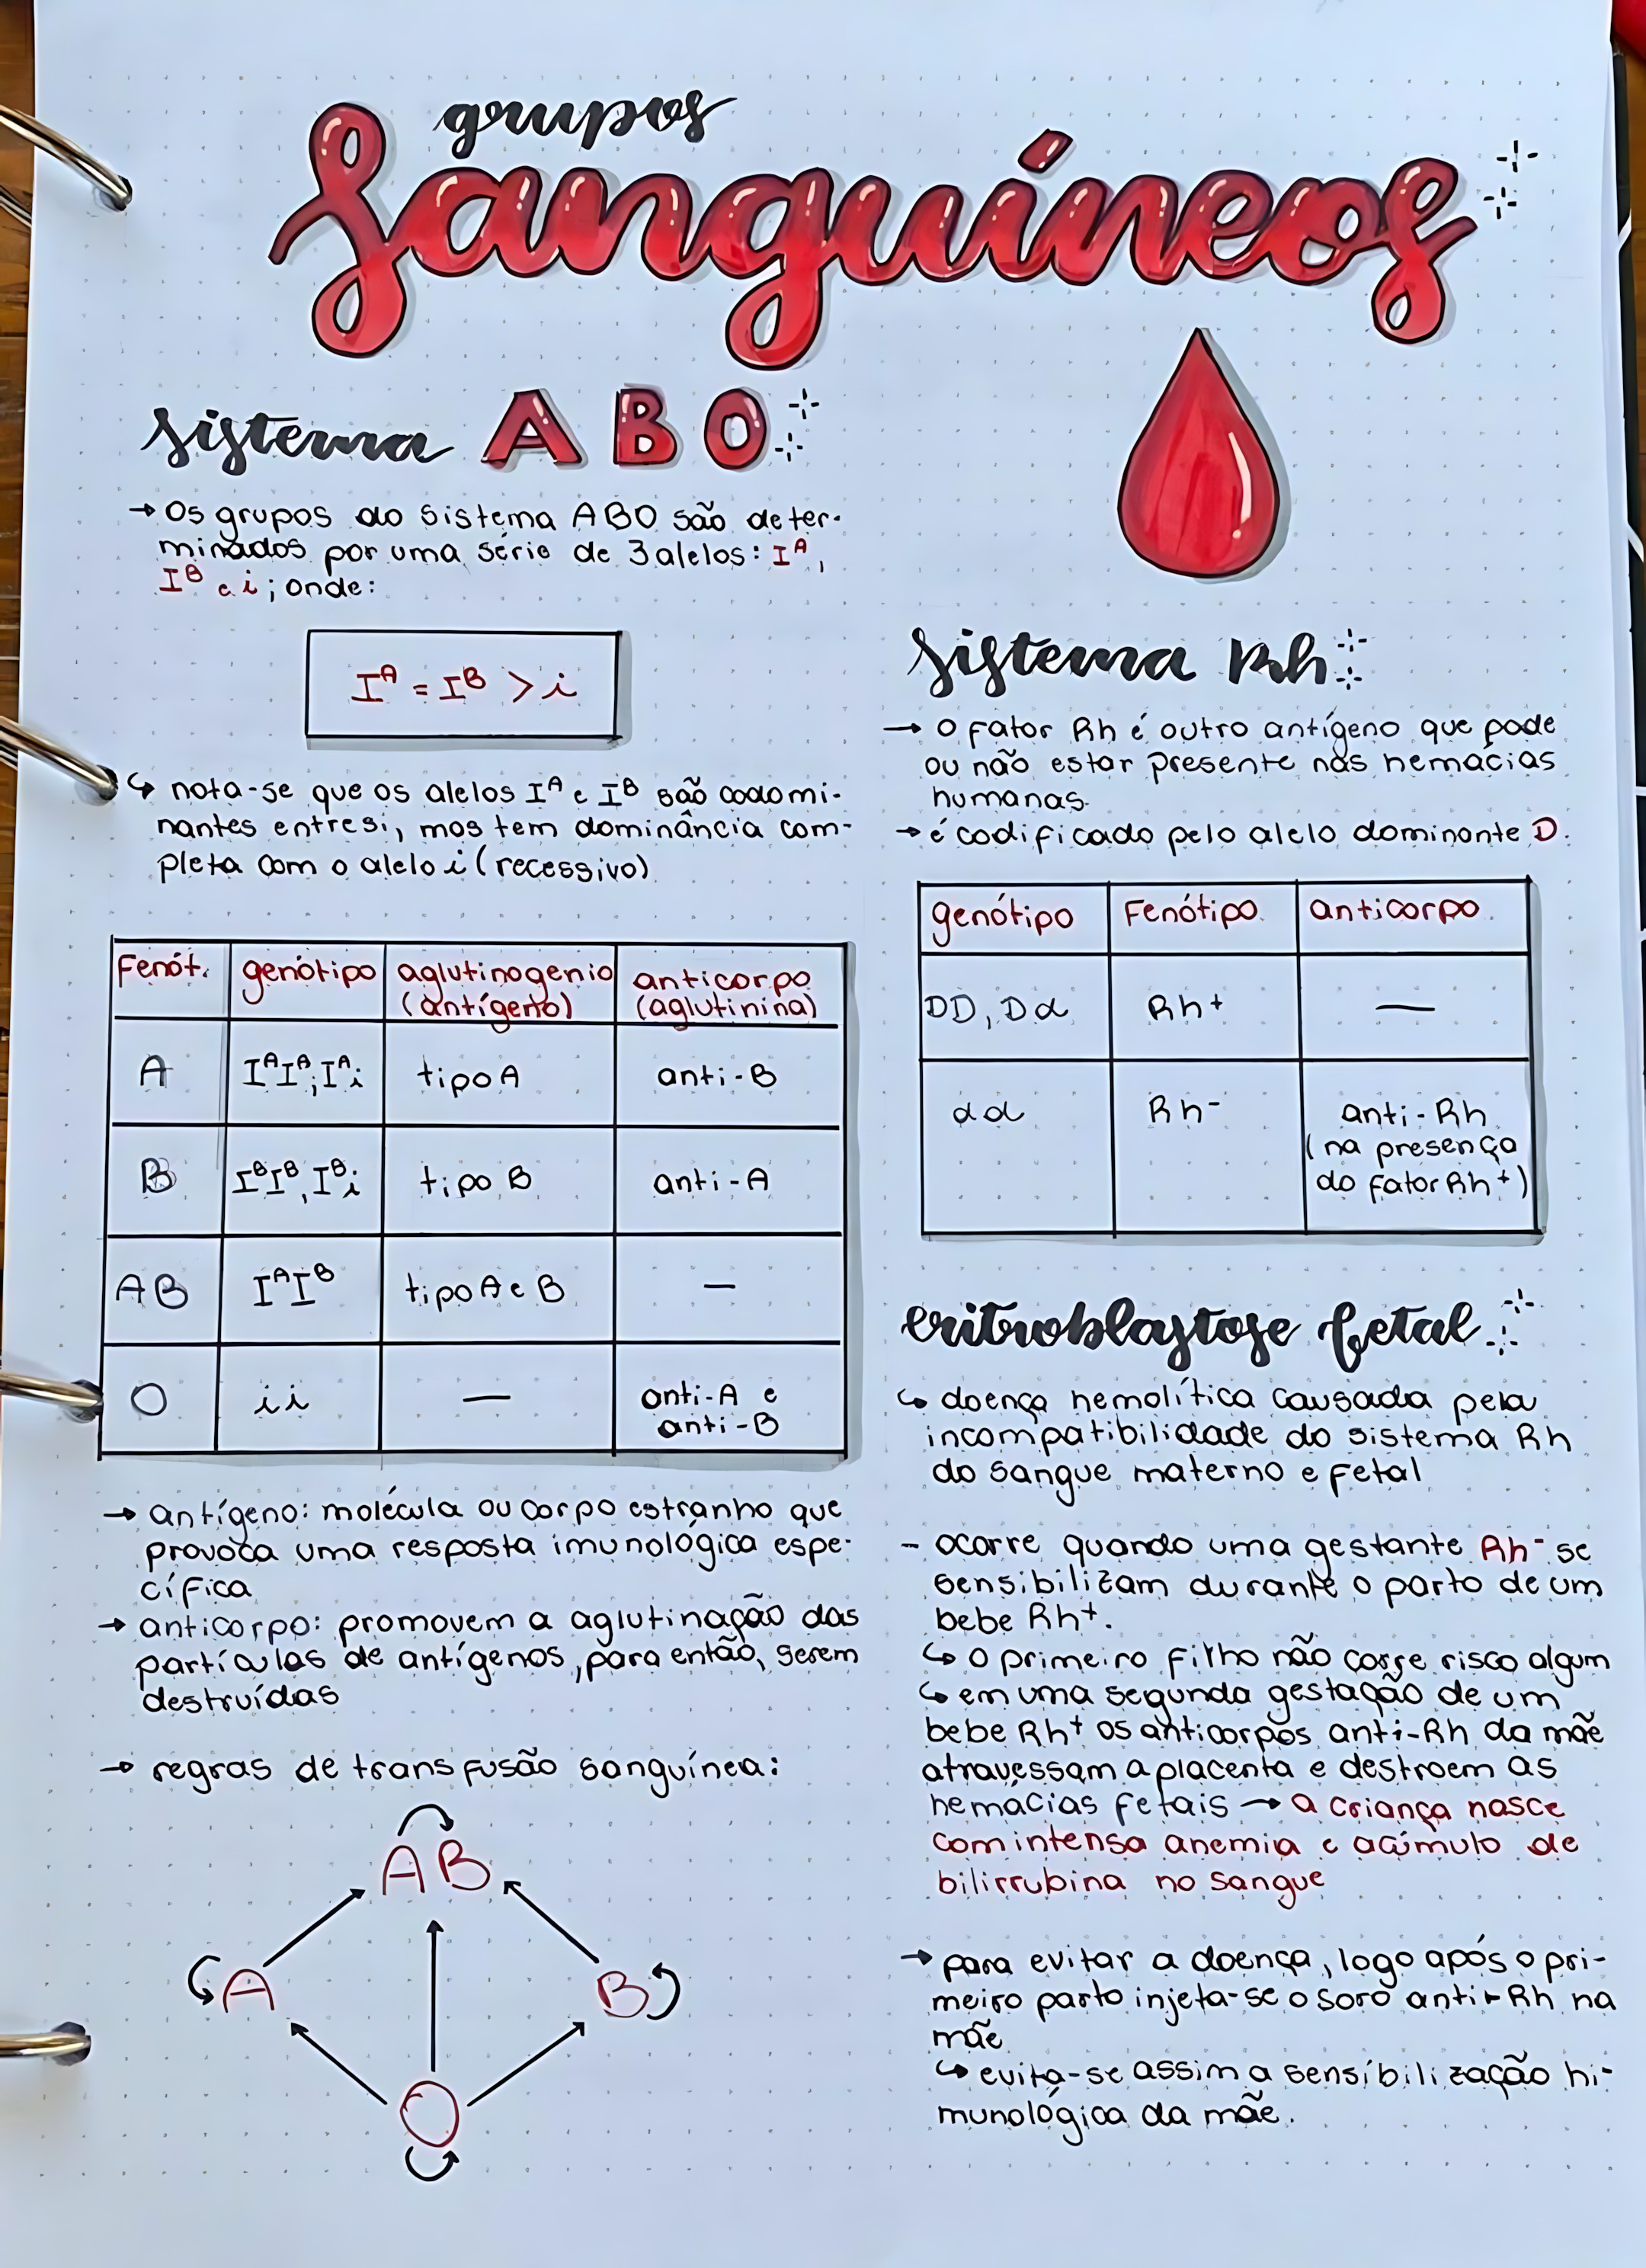 grupos
Sanguíneos
sistema ABO
→ Os grupos do sistema ABO são deter-
minados por uma série de 3 alelos: Iᴬ,
Iᴮ e i; onde:
Iᴬ = Iᴮ > i
↳ nota-se que os alelos Iᴬ e Iᴮ são codomi-
nantes entre si, mas tem dominância com-
pleta com o alelo i (recessivo)
Fenót. genótipo aglutinogenio anticorpo
(antígeno) (aglutinina)
A IᴬIᴬ, Iᴬi tipo A anti-B
B IᴮIᴮ, Iᴮi tipo B anti-A
AB IᴬIᴮ tipo A e B —
O ii — anti-A e
anti-B
→ antígeno: molécula ou corpo estranho que
provoca uma resposta imunológica espe-
cífica
→ anticorpo: promovem a aglutinação das
partículas de antígenos, para então, serem
destruídas
→ regras de transfusão sanguínea:
AB
A B
O
sistema Rh
→ O fator Rh é outro antígeno que pode
ou não estar presente nas hemácias
humanas.
→ é codificado pelo alelo dominante D.
genótipo Fenótipo anticorpo
DD, Dd Rh+ —
dd Rh- anti-Rh
(na presença
do fator Rh+)
eritroblastose fetal
↳ doença hemolítica causada pela
incompatibilidade do sistema Rh
do sangue materno e fetal
- ocorre quando uma gestante Rh- se
sensibilizam durante o parto de um
bebe Rh+.
↳ o primeiro filho não corre risco algum
↳ em uma segunda gestação de um
bebe Rh+ os anticorpos anti-Rh da mãe
atravessam a placenta e destroem as
hemacias fetais → a criança nasce
com intensa anemia e acúmulo de
bilirrubina no sangue
→ para evitar a doença, logo após o pri-
meiro parto injeta-se o soro anti-Rh na
mãe
↳ evita-se assim a sensibilização hi-
munológica da mãe.